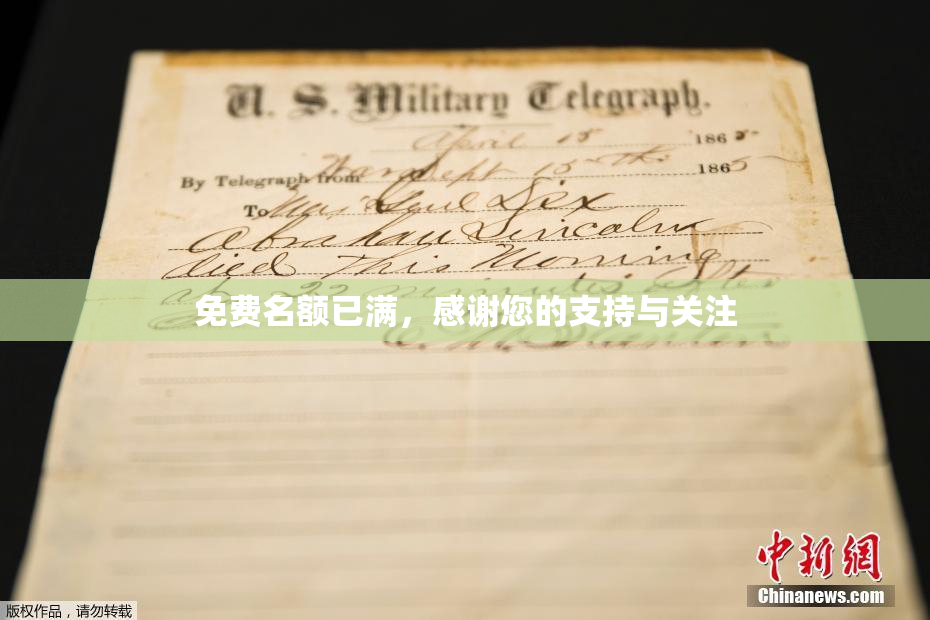 U. S. Military Telegraph.
April 15 1865
By Telegraph from War Dept 15th 1865
To Maj Genl Dix
Abraham Lincoln
died This Morning
at 22 minutes after
免费名额已满，感谢您的支持与关注
E. M. Stanton
中新网
Chinanews.com
版权作品，请勿转载